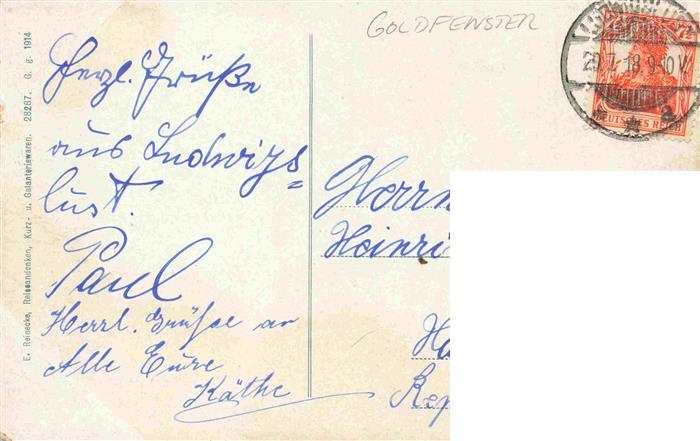 E. Reinecke, Reiseandenken, Kurz- u. Galanteriewaren. 28287. G. g. 1914
GOLDFENSTER
Herzl. Grüße
aus Ludwigs=
lust.
Paul
Herzl. Grüße an
Alle Eure
Käthe
Herrn
Heinri
Ha
Rep
29.7.18.9-10V.
DEUTSCHES REICH